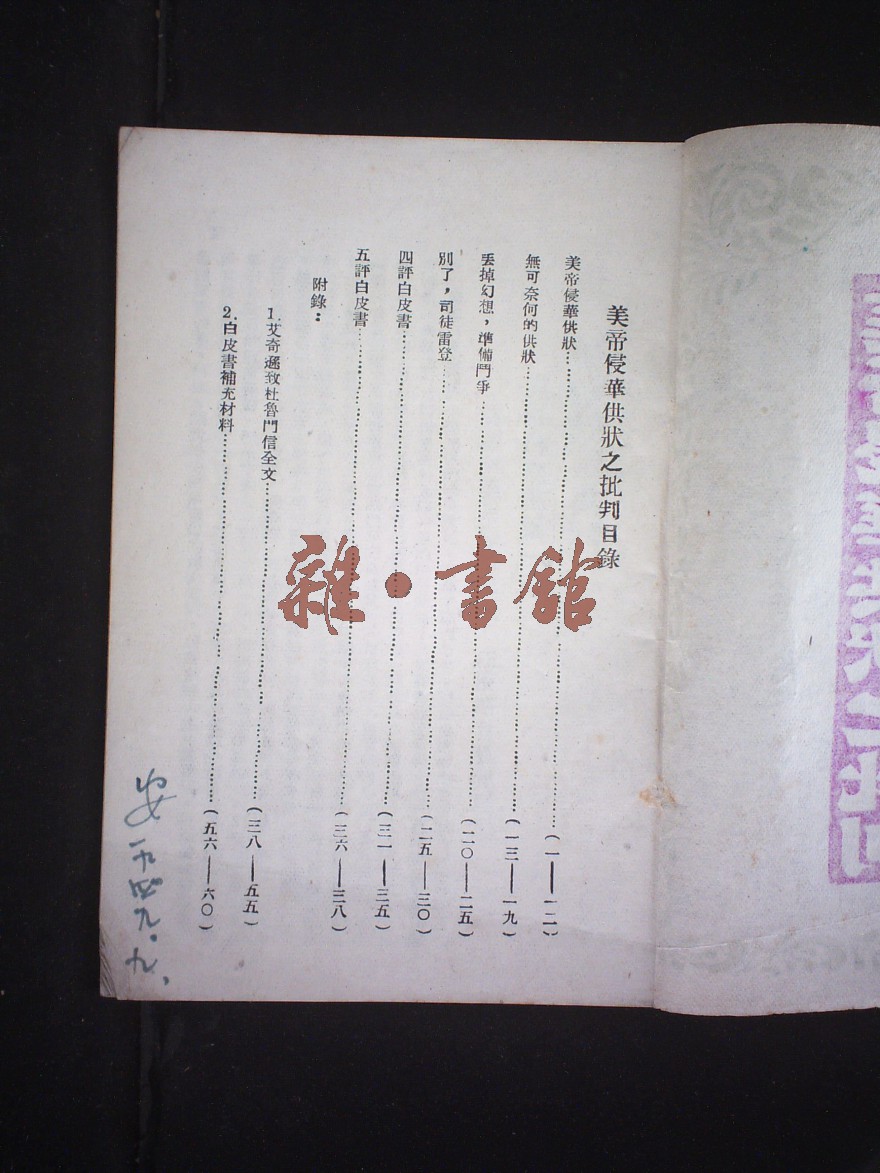 美帝侵華供狀之批判目錄
美帝侵華供狀……(一——一二)
無可奈何的供狀……(一三——一九)
丟掉幻想，準備鬥爭……(二〇——二五)
別了，司徒雷登……(二五——三〇)
四評白皮書……(三一——三五)
五評白皮書……(三六——三八)
附錄：
1.艾奇遜致杜魯門信全文……(三八——五五)
2.白皮書補充材料……(五六——六〇)
安一九四九.九.
雜·書館